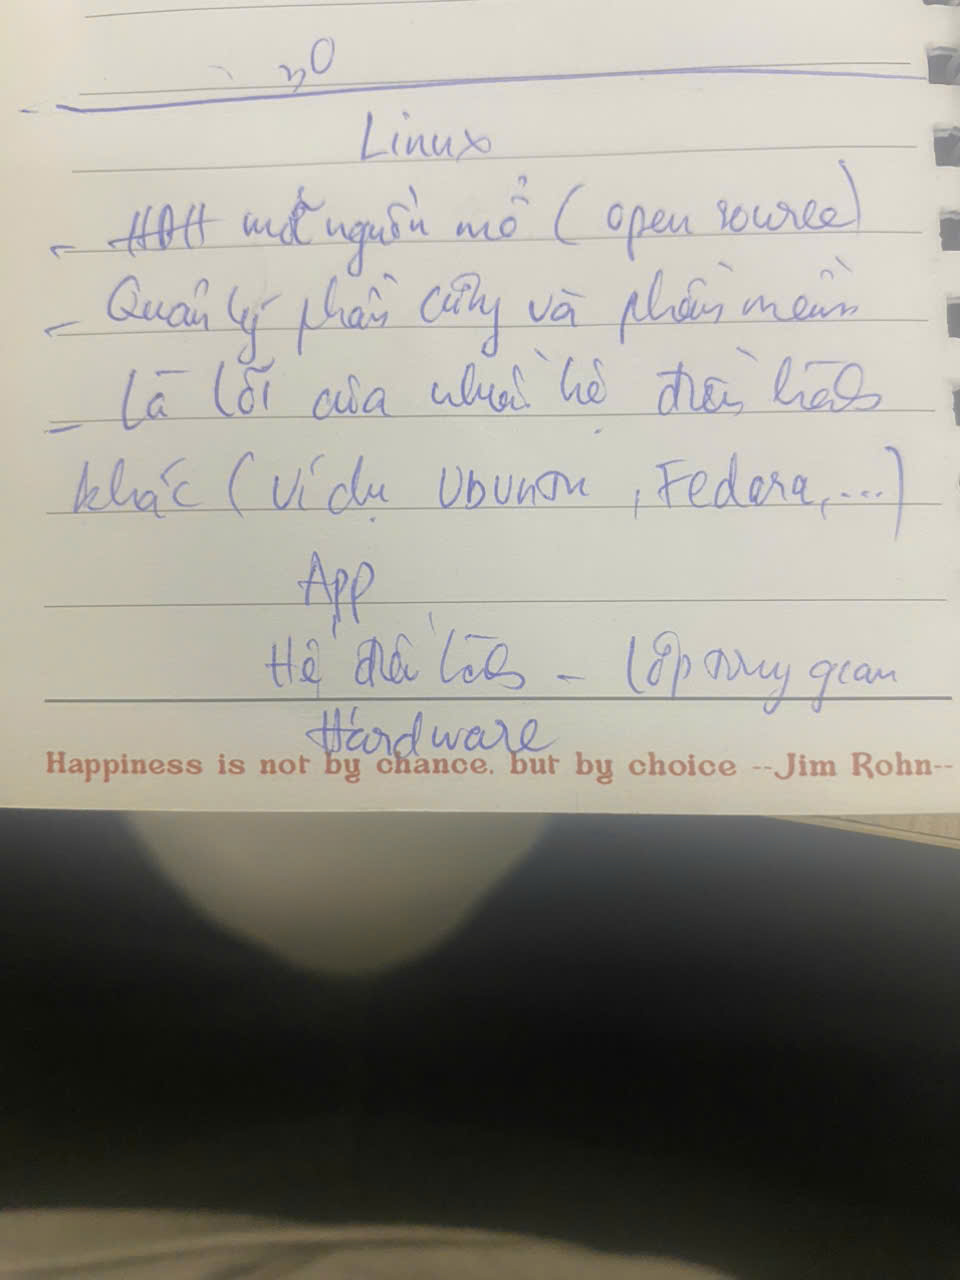 Linux
- HĐH mã nguồn mở (open source)
- Quản lý phần cứng và phần mềm
- Là lõi của nhiều hệ điều hành
khác (ví dụ Ubuntu, Fedora, ...)
App
Hệ điều hành - lớp trung gian
Hardware
Happiness is not by chance. but by choice --Jim Rohn--